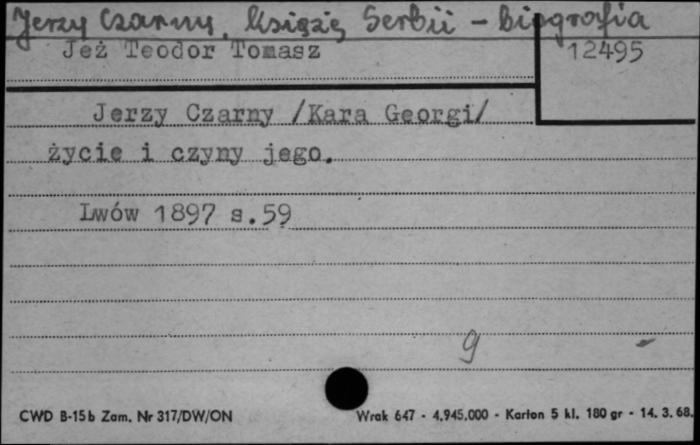 Jerzy Czarny, Książę Serbii - biografia
Jeż Teodor Tomasz
12495
Jerzy Czarny /Kara Georgi/
życie i czyny jego.
Lwów 1897 s.59
9
CWD B-15b Zam. Nr 317/DW/ON
Wrak 647 - 4,945,000 - Karton 5 kl. 180 gr - 14. 3. 68.